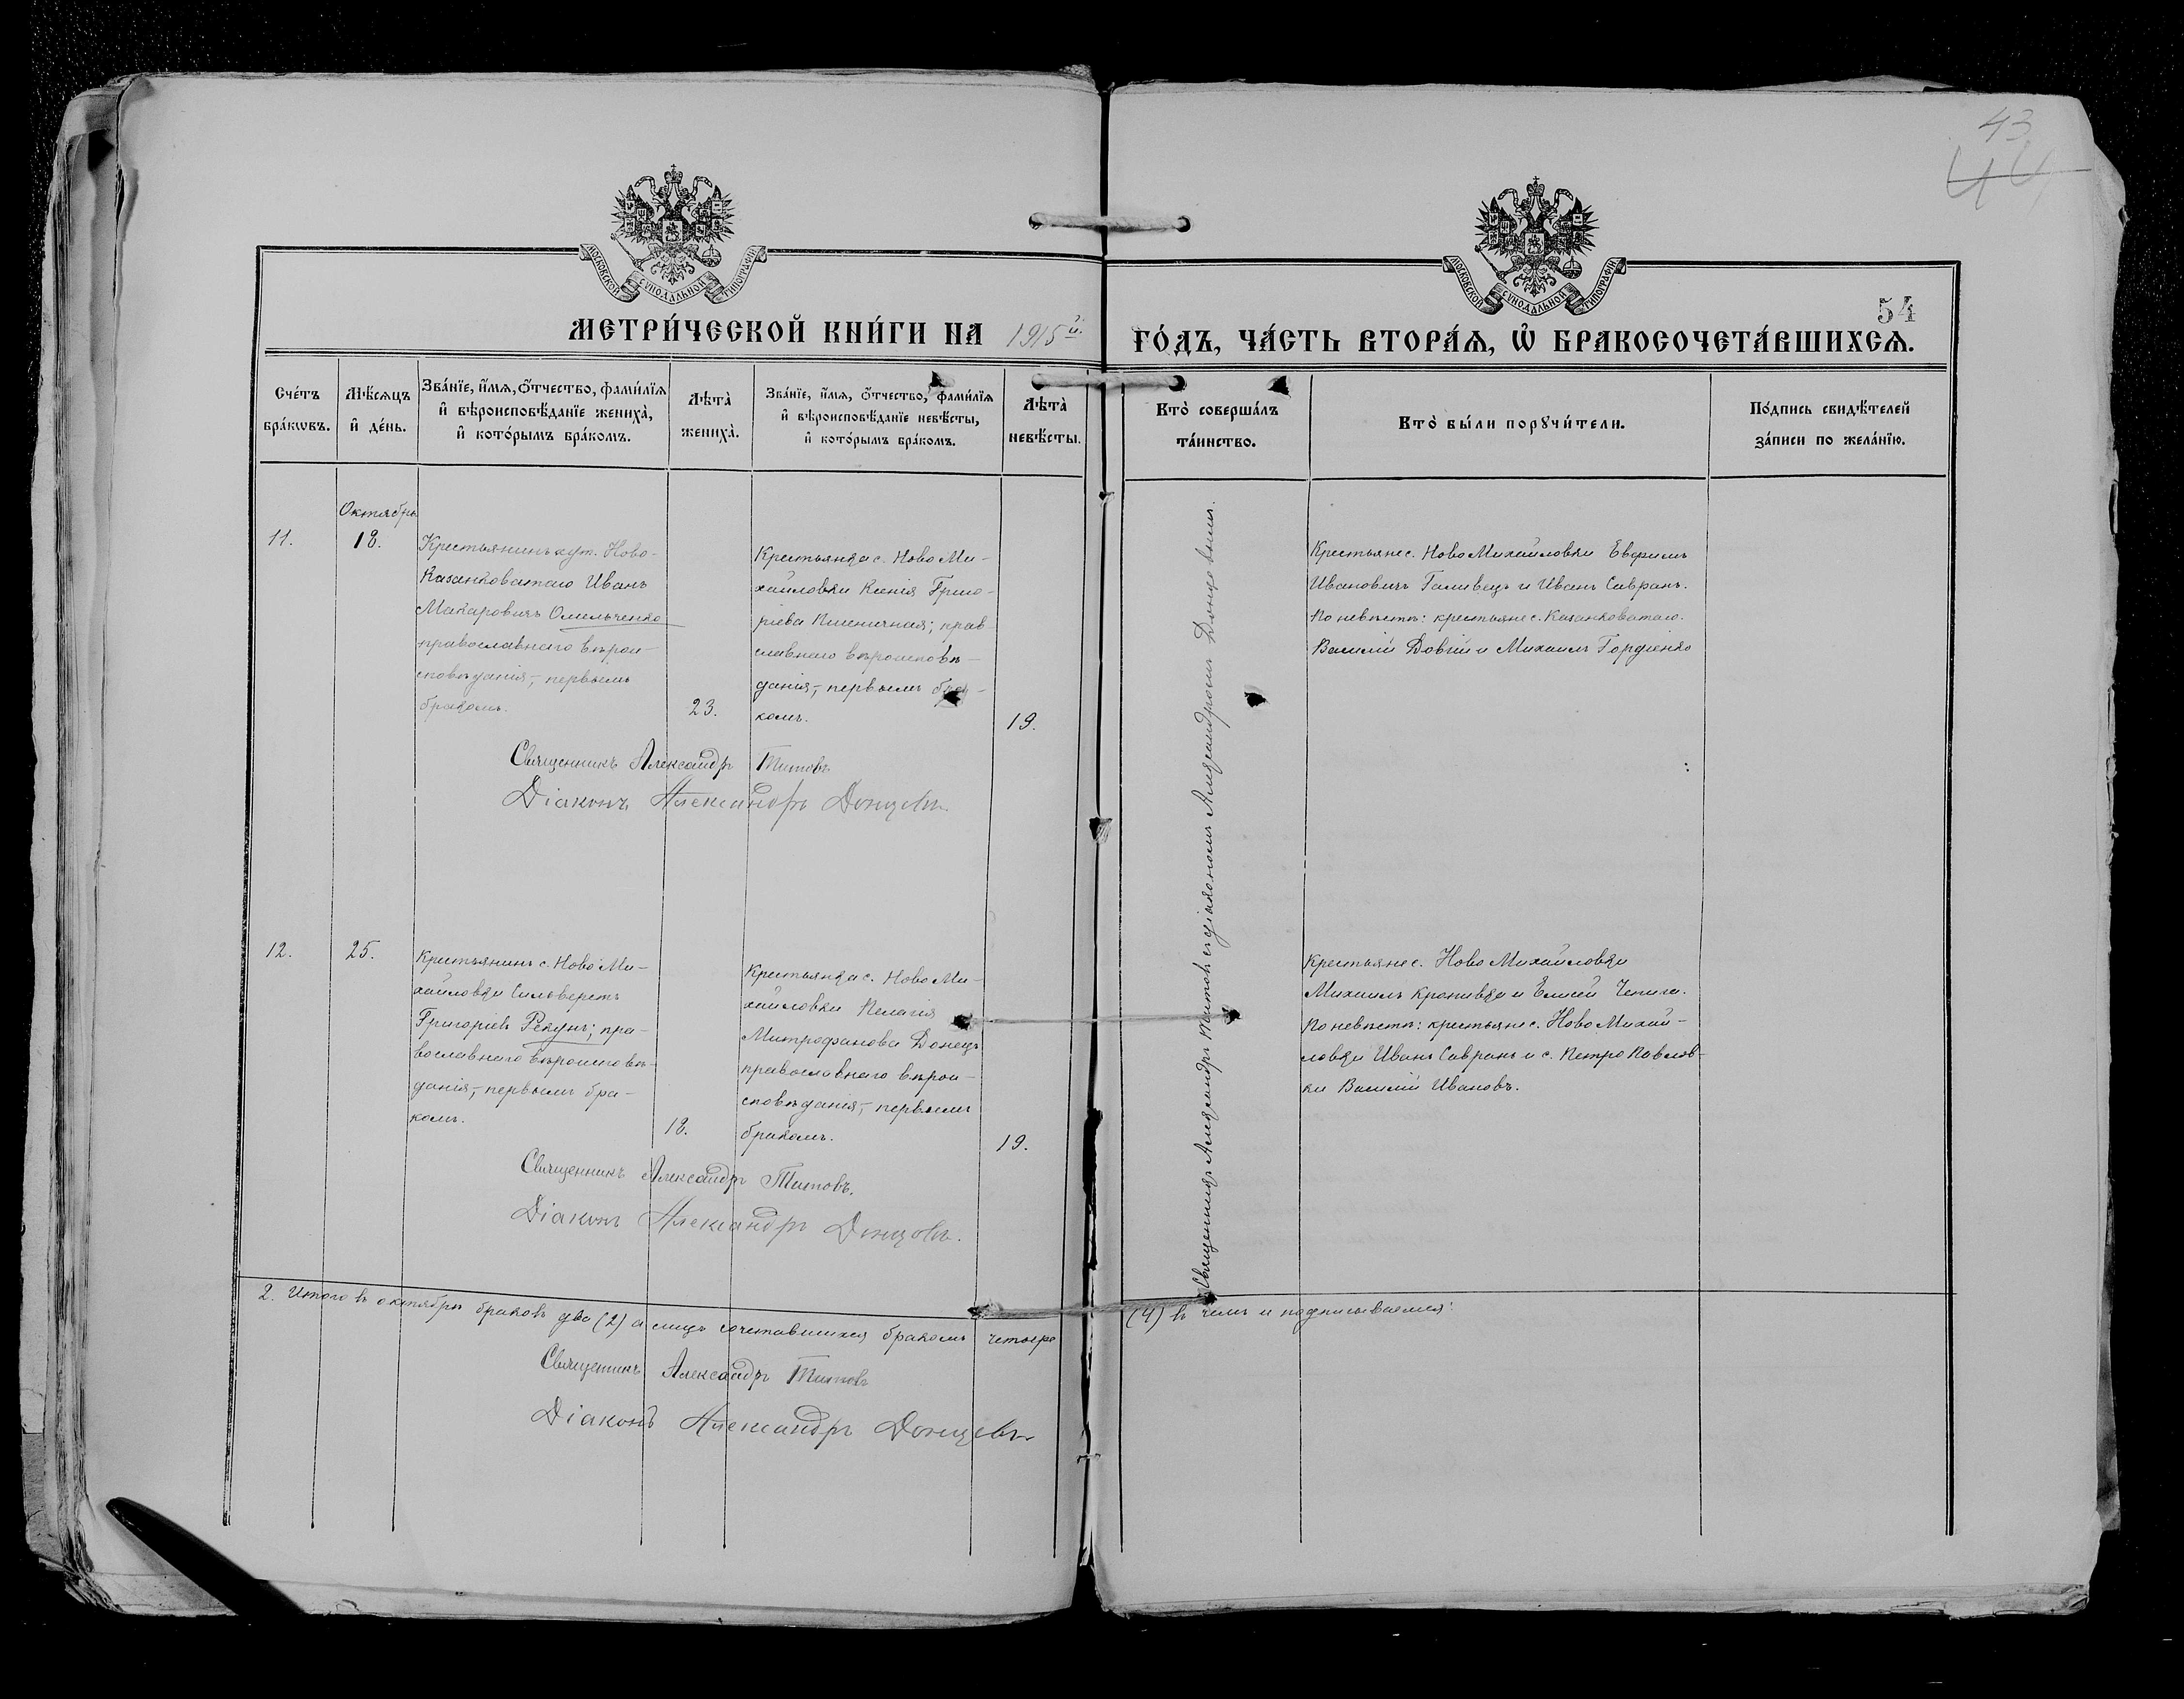 43
44
МОСКОВСКОЙ СѴНОДАЛЬНОЙ ТИПОГРАФІИ
МОСКОВСКОЙ СѴНОДАЛЬНОЙ ТИПОГРАФІИ
54
МЕТРИ́ЧЕСКОЙ КНИ́ГИ НА 1915й. ГО́ДЪ, ЧА́СТЬ ВТОРА́Ѧ, Ѽ БРАКОСОЧЕТА́ВШИХСѦ.
Сче́тъ
бра́кѡвъ.
Мѣ́сѧцъ
и҆ де́нь.
Зва́нїе, и҆́мѧ, ѻ҆́тчество, фами́лїѧ
и҆ вѣроисповѣ́данїе жениха̀,
и҆ кото́рымъ бра́комъ.
Лѣта̀
жениха̀.
Зва́нїе, и҆́мѧ, ѻ҆́тчество, фами́лїѧ
и҆ вѣроисповѣ́данїе невѣ́сты,
и҆ кото́рымъ бра́комъ.
Лѣта̀
невѣ́сты.
Кто̀ соверша́лъ
та́инство.
Кто̀ бы́ли порꙋчи́тели.
По́дпись свидѣ́телей
за́писи по жела́нїю.
Октябрь
11.
18.
Крестьянинъ хут. Ново-
Казанковатаго Иванъ
Макаровичъ Омельченко
православнаго вѣрои-
сповѣданія,- первымъ
бракомъ.
23.
Крестьянка с. Ново Ми-
хайловки Ксенія Григо-
ріева Пшеничная; прав
славнаго вѣроисповѣ-
данія,- первымъ бра-
комъ.
19.
Священникъ Александръ Титовъ съ діакономъ Александромъ Донцовымъ.
Крестьяне с. Ново Михайловки Евфимъ
Ивановичъ Галивецъ и Иванъ Савранъ.
По невѣстѣ: крестьяне с. Казанковатаго.
Василій Довгій и Михаилъ Гордіенко
Священникъ Александръ Титовъ
Діаконъ Александръ Донцовъ
12.
25.
Крестьянинъ с. Ново Ми-
хайловки Сильверстъ
Григоріевъ Рекунъ; пра-
вославнаго вѣроисповѣ-
данія,- первымъ бра-
комъ.
18.
Крестьянка с. Ново Ми-
хайловки Пелагія
Митрофанова Донецъ
православнаго вѣрои-
сповѣданія,- первымъ
бракомъ.
19.
Крестьяне с. Ново Михайловки
Михаилъ Кропивка и Елисей Чепига.
По невѣстѣ: крестьяне с. Ново Михай-
ловки Иванъ Савранъ и с. Петро Павлов-
ки Василій Ивановъ.
Священникъ Александръ Титовъ.
Діаконъ Александръ Донцовъ.
2. Итого въ октябрѣ браковъ два (2) а лицъ сочетавшихся бракомъ четыре (4) въ чемъ и подписываемся:
Священникъ Александръ Титовъ
Діаконъ Александръ Донцовъ